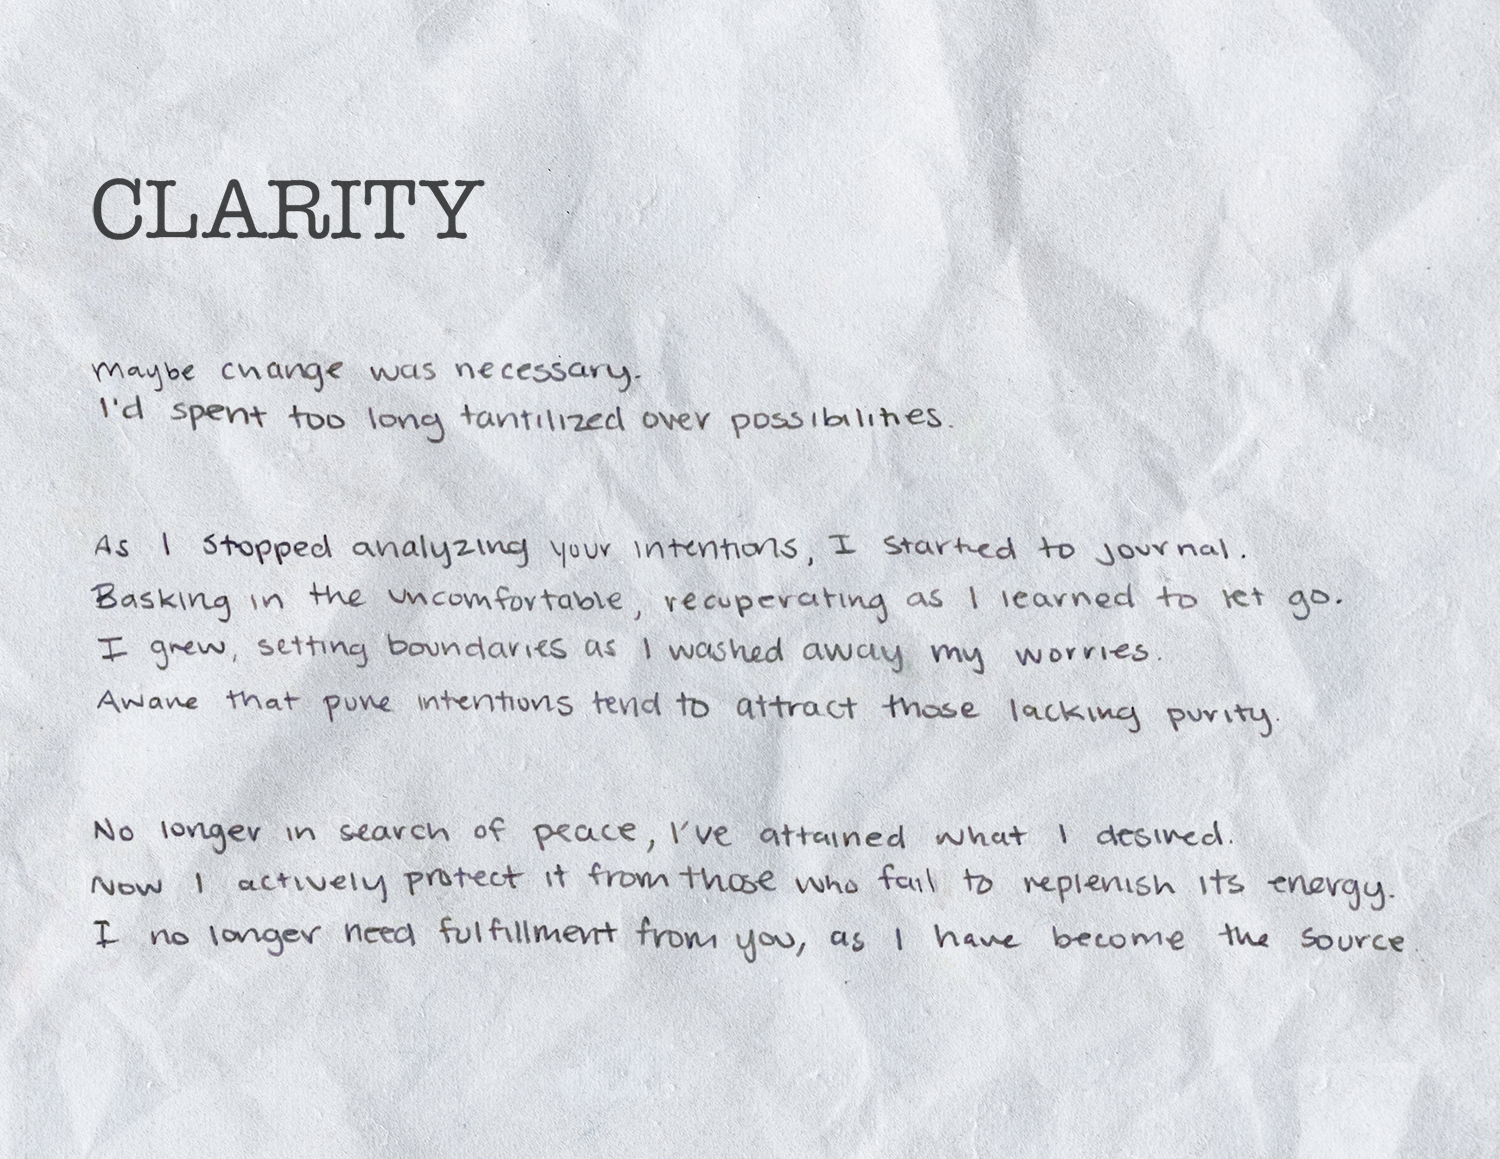 CLARITY
Maybe change was necessary.
I'd spent too long tantilized over possibilities.
As I stopped analyzing your intentions, I started to journal.
Basking in the uncomfortable, recuperating as I learned to let go.
I grew, setting boundaries as I washed away my worries.
Aware that pure intentions tend to attract those lacking purity.
No longer in search of peace, I've attained what I desired.
Now I actively protect it from those who fail to replenish its energy.
I no longer need fulfillment from you, as I have become the source.